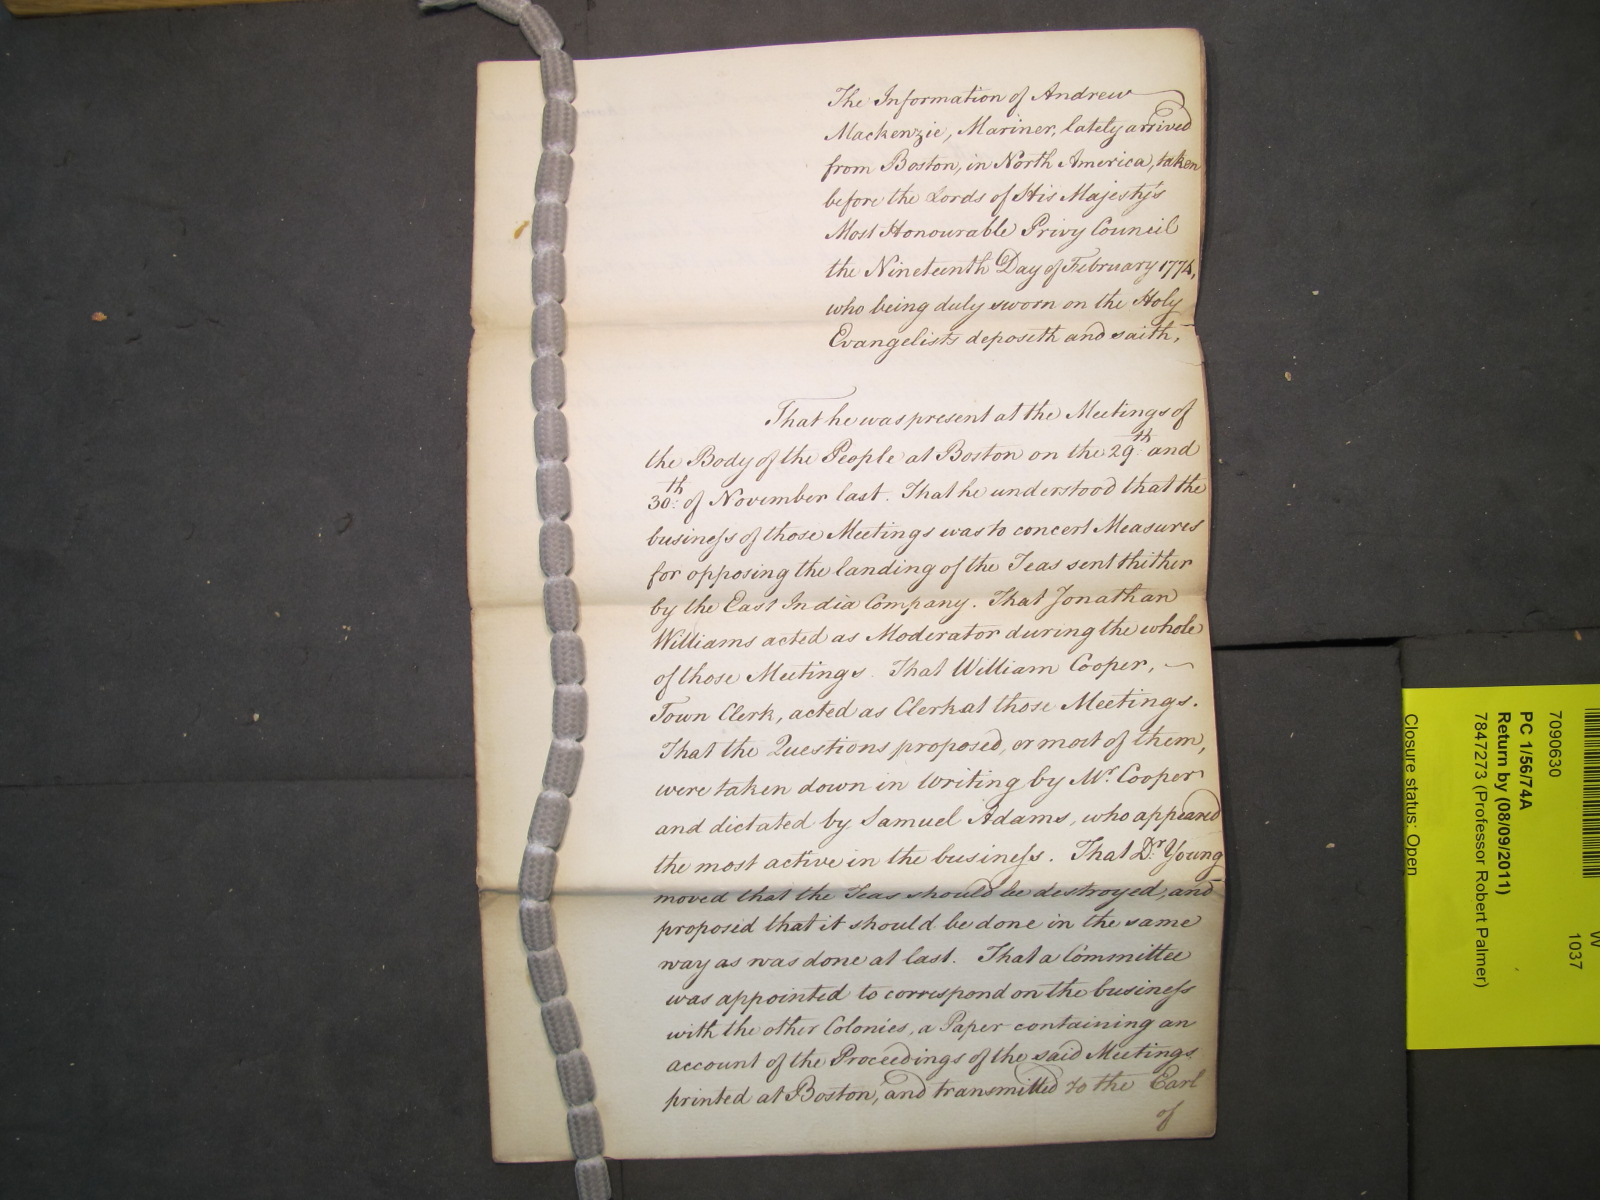 The Information of Andrew
Mackenzie, Mariner, lately arrived
from Boston, in North America, taken
before the Lords of His Majesty's
Most Honourable Privy Council
the Nineteenth Day of February 1774,
who being duly sworn on the Holy
Evangelists deposeth and saith,
That he was present at the Meetings of
the Body of the People at Boston on the 29th. and
30th. of November last. That he understood that the
business of those Meetings was to concert Measures
for opposing the landing of the Teas sent thither
by the East India Company. That Jonathan
Williams acted as Moderator during the whole
of those Meetings. That William Cooper,
Town Clerk, acted as Clerk at those Meetings.
That the Questions proposed, or most of them,
were taken down in Writing by Mr. Cooper
and dictated by Samuel Adams, who appeared
the most active in the business. That Dr. Young
moved that the Teas should be destroyed, and
proposed that it should be done in the same
way as was done at last. That a Committee
was appointed to correspond on the business
with the other Colonies, a Paper containing an
account of the Proceedings of the said Meetings
printed at Boston, and transmitted to the Earl
of
W
1037
7090630
PC 1/56/74A
Return by (08/09/2011)
7847273 (Professor Robert Palmer)
Closure status: Open